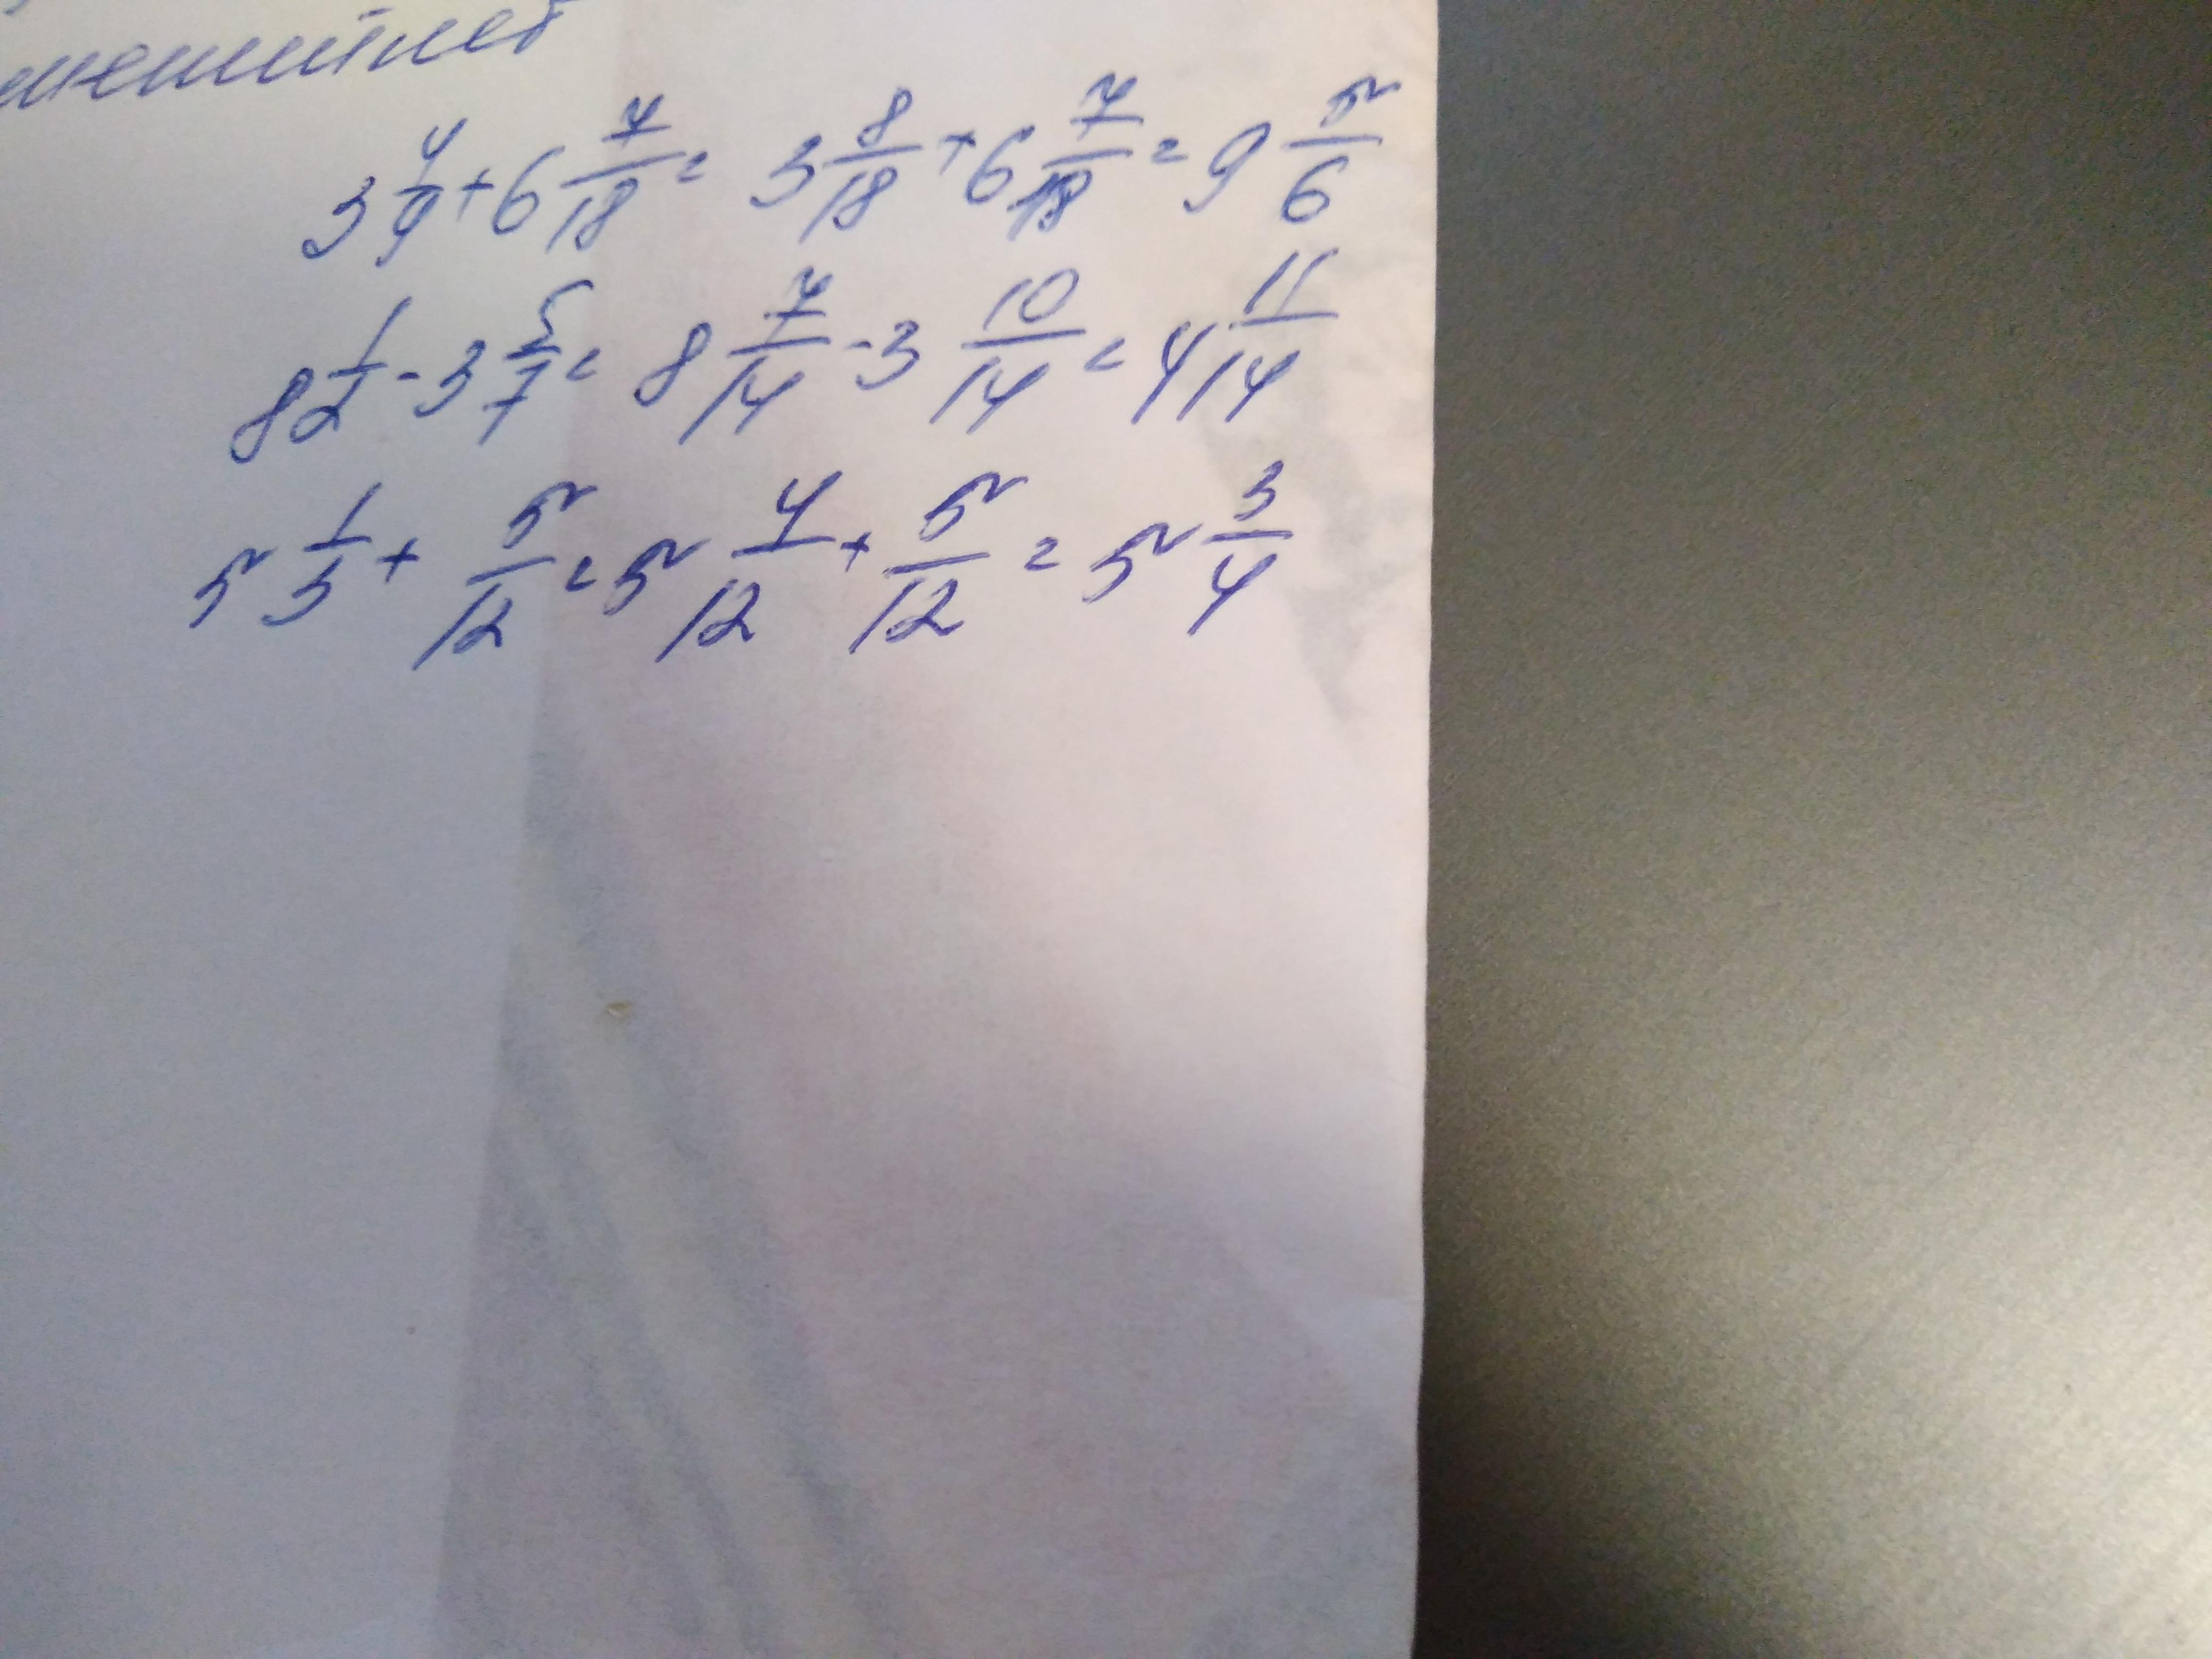 3 4/9 + 6 7/18 = 3 8/18 + 6 7/18 = 9 5/6
8 1/2 - 3 5/7 = 8 7/14 - 3 10/14 = 4 11/14
5 1/3 + 5/12 = 5 4/12 + 5/12 = 5 3/4